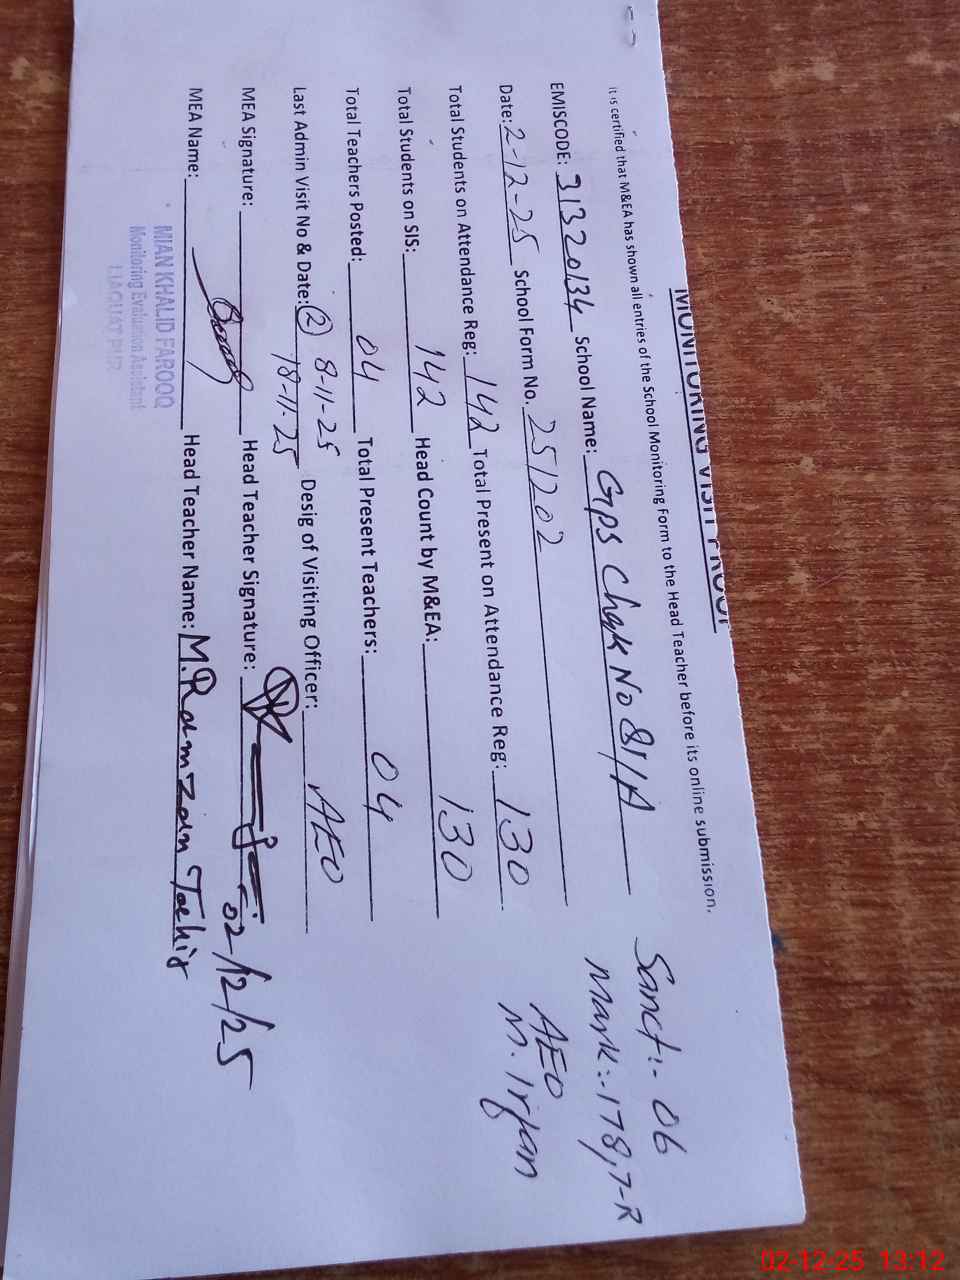 MONITORING VISIT PROOF
It is certified that M&EA has shown all entries of the School Monitoring Form to the Head Teacher before its online submission.
EMISCODE: 31320134 School Name: GPS Chak No 81/A
Date: 2-12-25 School Form No. 251202
Total Students on Attendance Reg: 142 Total Present on Attendance Reg: 130
Total Students on SIS: 142 Head Count by M&EA: 130
Total Teachers Posted: 04 Total Present Teachers: 04
Last Admin Visit No & Date: (2) 8-11-25 Desig of Visiting Officer: AEO
18-11-25
MEA Signature: Head Teacher Signature: 02/12/25
MEA Name: Head Teacher Name: M.Ramzan Tahir
MIAN KHALID FAROOQ
Monitoring Evaluation Assistant
LIAQUAT PUR
Sanct:- 06
Mark:-178,7-R
AEO
M. Irfan
02-12-25 13:12